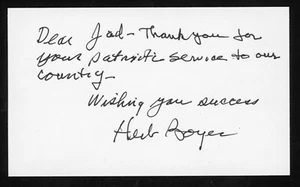 Dear Jad - Thank you for
your patriotic service to our
country -
Wishing you success
Herb Boyer